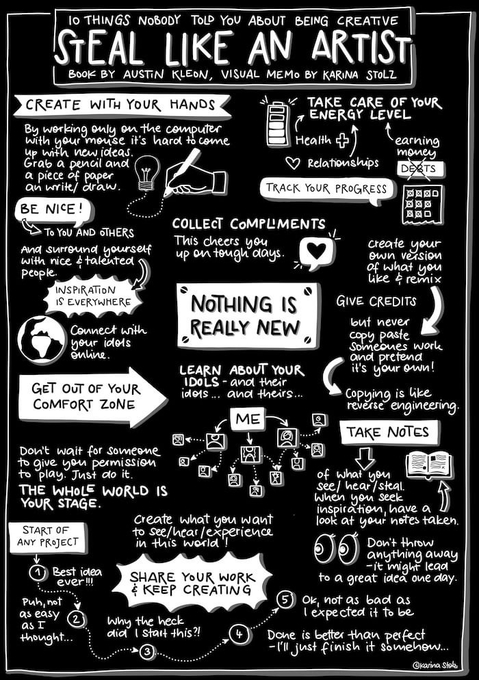 10 THINGS NOBODY TOLD YOU ABOUT BEING CREATIVE
STEAL LIKE AN ARTIST
BOOK BY AUSTIN KLEON, VISUAL MEMO BY KARINA STOLZ
CREATE WITH YOUR HANDS
By working only on the computer
with your mouse it's hard to come
up with new ideas.
Grab a pencil and
a piece of paper
an write/draw.
TAKE CARE OF YOUR
ENERGY LEVEL
Health
Relationships
earning
money
DEBTS
TRACK YOUR PROGRESS
BE NICE!
TO YOU AND OTHERS
And surround yourself
with nice & talented
people.
INSPIRATION
IS EVERYWHERE
Connect with
your idols
online.
COLLECT COMPLIMENTS
This cheers you
up on tough days.
NOTHING IS
REALLY NEW
create your
own version
of what you
like & remix
GIVE CREDITS
but never
copy paste
someones work
and pretend
it's your own!
Copying is like
reverse engineering.
GET OUT OF YOUR
COMFORT ZONE
LEARN ABOUT YOUR
IDOLS - and their
idols... and theirs...
ME
TAKE NOTES
of what you
see/hear/steal.
When you seek
inspiration, have a
look at your notes taken.
Don't wait for someone
to give you permission
to play. Just do it.
THE WHOLE WORLD IS
YOUR STAGE.
Create what you want
to see/hear/experience
in this world!
Don't throw
anything away
-it might lead
to a great idea one day.
START OF
ANY PROJECT
1 Best idea
ever!!!
SHARE YOUR WORK
& KEEP CREATING
Puh, not
as easy
as I
thought...
2
Why the heck
did I start this?!
3
4
5 Ok, not as bad as
I expected it to be
Done is better than perfect
-I'll just finish it somehow...
©karina stolz